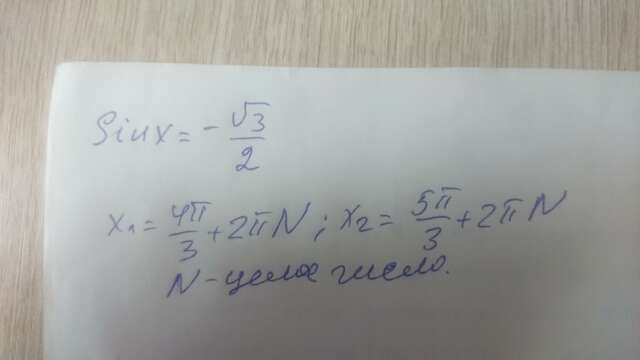 Sin x = - √3/2
x₁ = 4π/3 + 2πN ; x₂ = 5π/3 + 2πN
N - целое число.